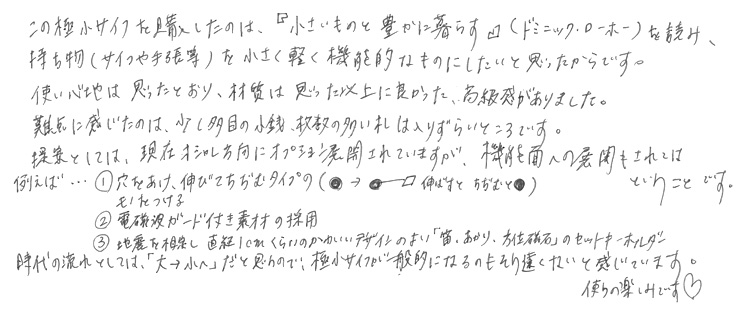 この極小サイフを購入したのは、『小さいものと豊かに暮らす』(ドミニック・ローホー)を読み、
持ち物(サイフや手張等)を小さく軽く機能的なものにしたいと思ったからです。
使い心地は思ったとおり、材質は思った以上に良かった、高級感がありました。
難点に感じたのは、少し多目の小銭、枚数の多い札は入りずらいところです。
提案としては、現在オシャレ方向にオプション展開されていますが、機能面への展開もされては
例えば… ①穴をあけ、伸びてちぢむタイプの(→ 伸ばすと ちぢむと) ということです。
ヒモをつける
②電磁波ガード付き素材の採用
③地震を想定し直径1cmくらいのかわいいデザインのよい「笛、あかり、方位磁石」のセットキーホルダー
時代の流れとしては、「大→小へ」だと思うので、極小サイフが一般的になるのもそう遠くないと感じています。
使うの楽しみです♡